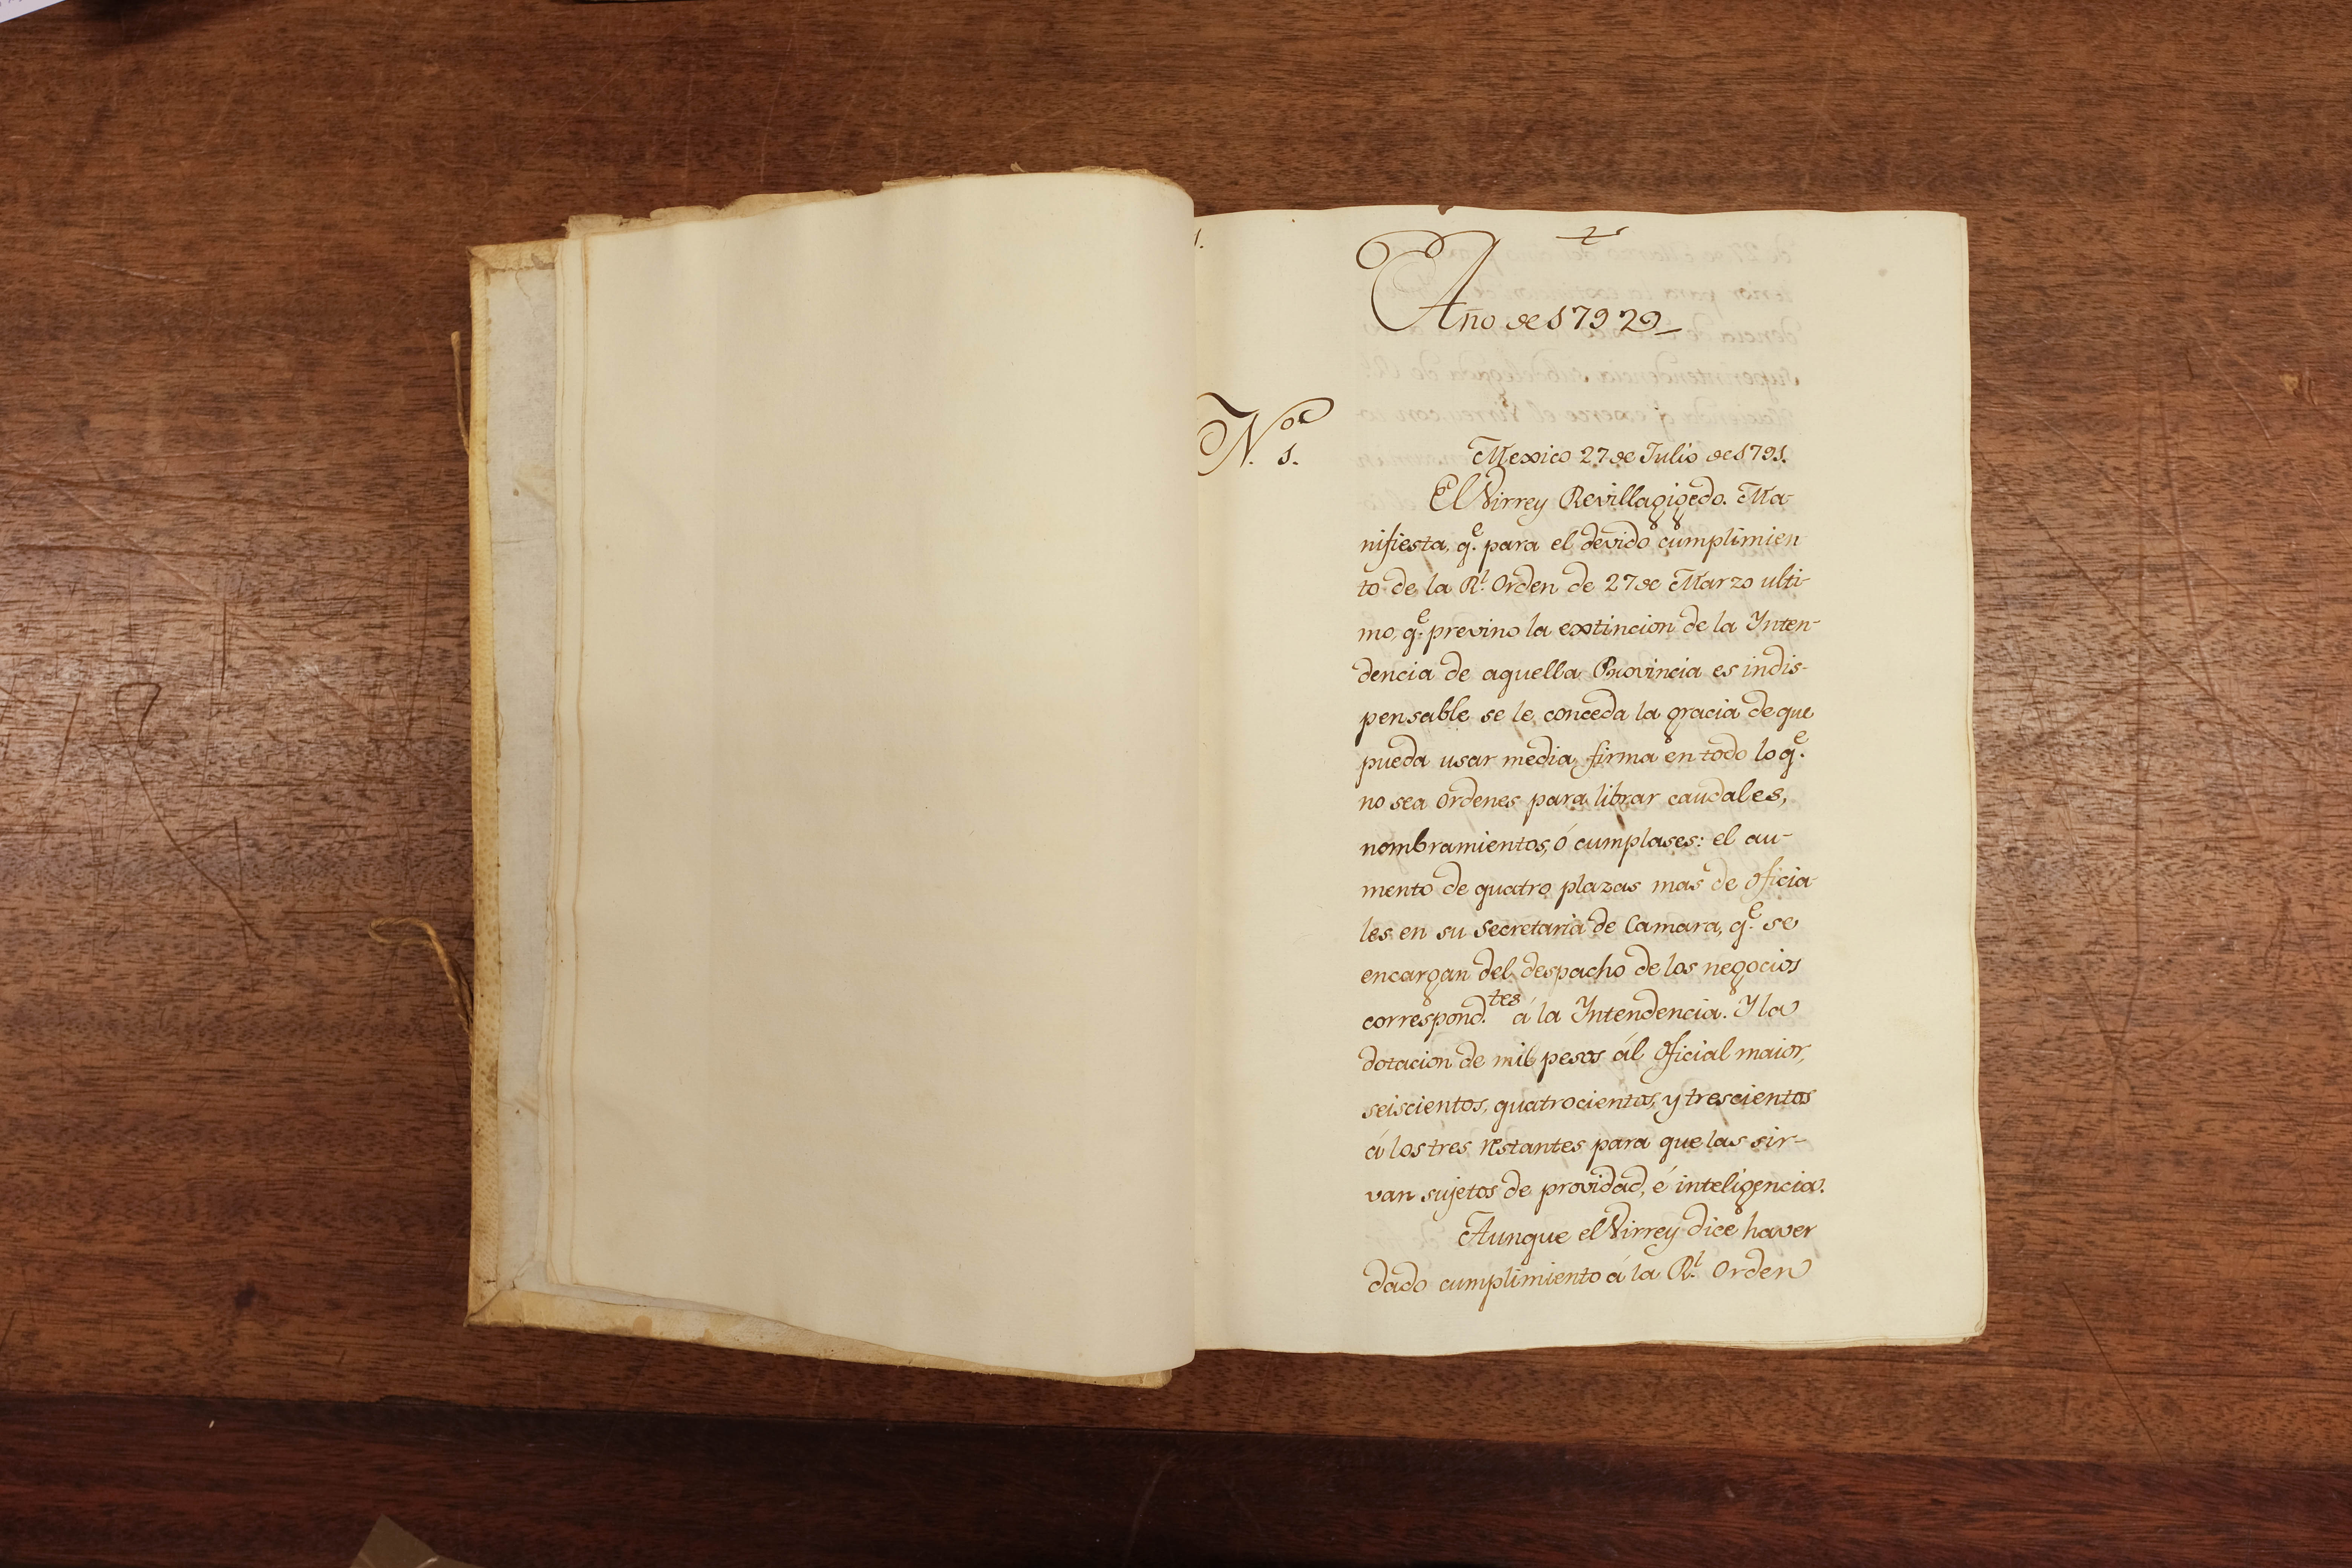 Año de 1792
N.º 1.
Mexico 27 de Julio de 1791.
El Virrey Revillagigedo. Ma-
nifiesta, q.e para el devido cumplimien
to de la R.l Orden de 27 de Marzo ulti-
mo, q.e previno la extincion de la Ynten-
dencia de aquella Provincia es indis-
pensable se le conceda la gracia de que
pueda usar media firma en todo lo q.e
no sea ordenes para librar caudales,
nombramientos, ó cumplases: el au-
mento de quatro plazas mas de oficia
les en su Secretaria de Camara, q.e se
encargan del despacho de los negocios
correspond.tes á la Yntendencia. Y la
dotacion de mil pesos ál oficial maior,
seiscientos, quatrocientos, y trescientos
á los tres restantes para que las sir-
van sujetos de providad, é inteligencia.
Aunque el Virrey dice haver
dado cumplimiento á la R.l Orden